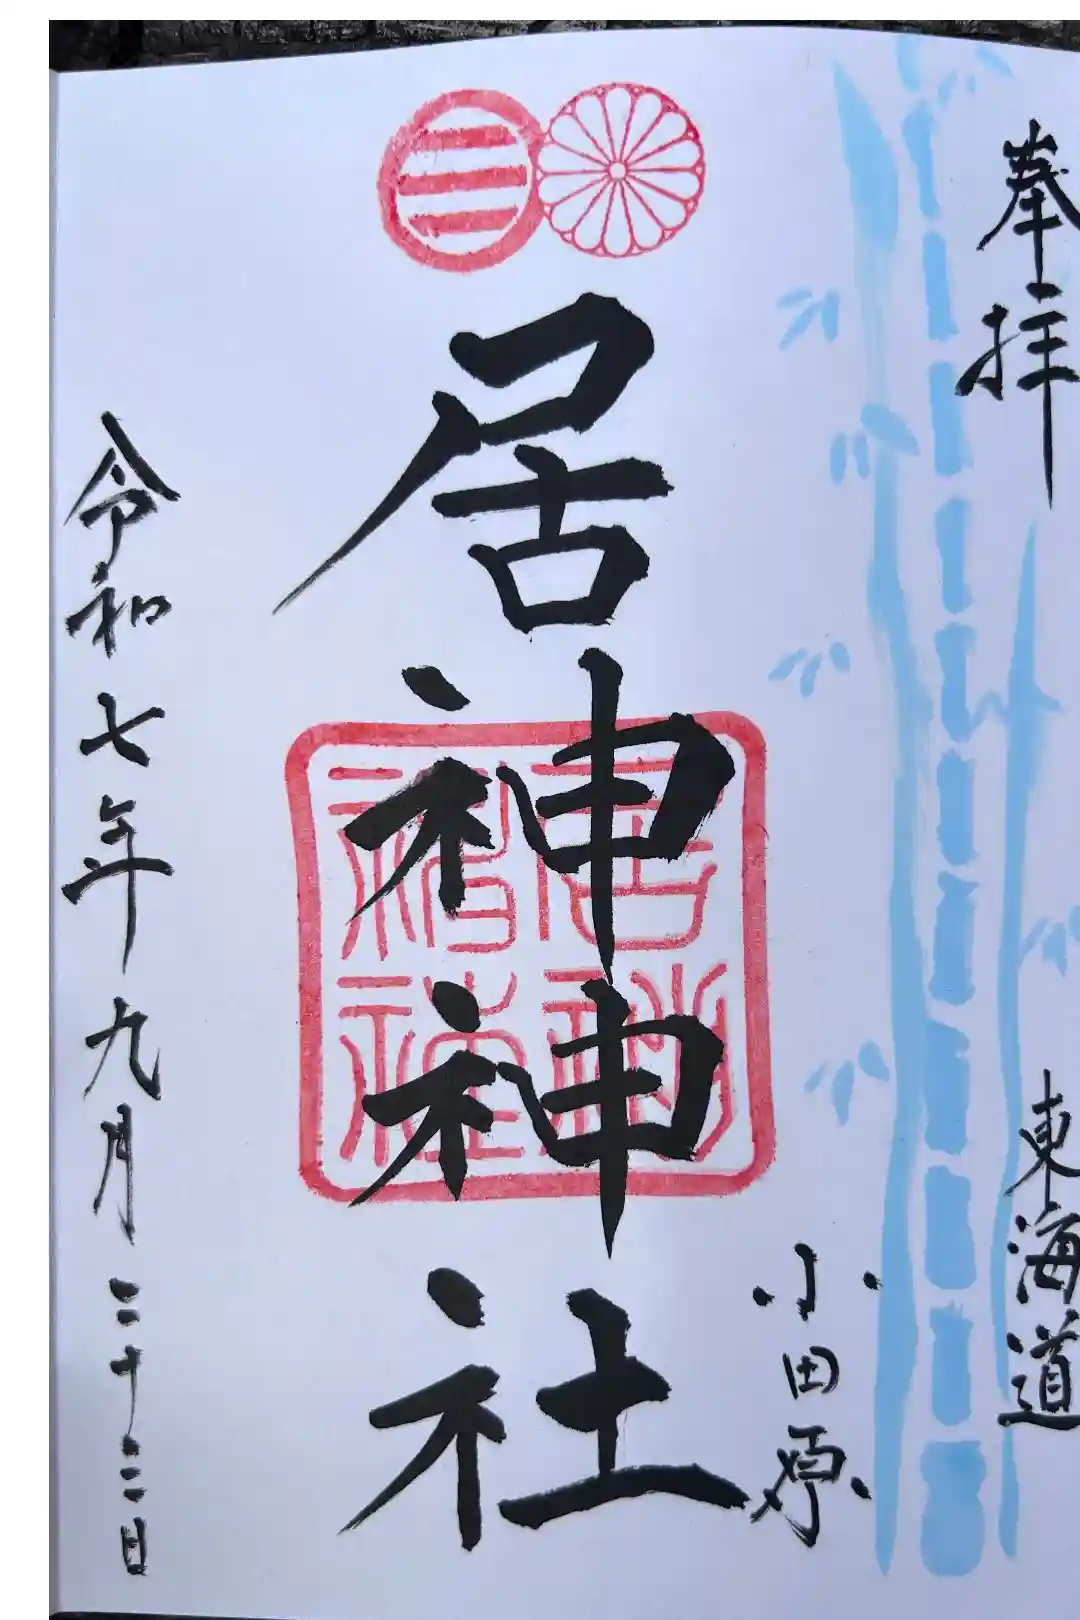 奉拝
東海道
小田原
居神神社
令和七年九月二十二日